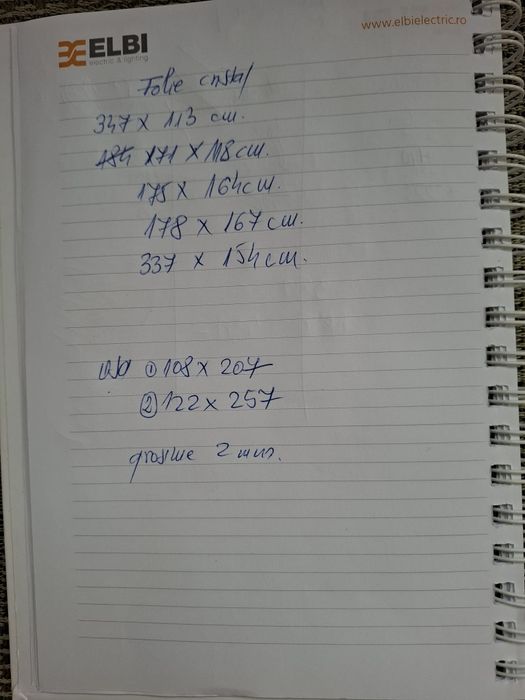 www.elbielectric.ro
ELBI
electric & lighting
Folie cristal
347 x 113 cm.
184 x 71 x 118 cm.
175 x 164 cm.
178 x 167 cm.
337 x 154 cm.
ușă ① 108 x 207
② 122 x 257
grosime 2 mm.